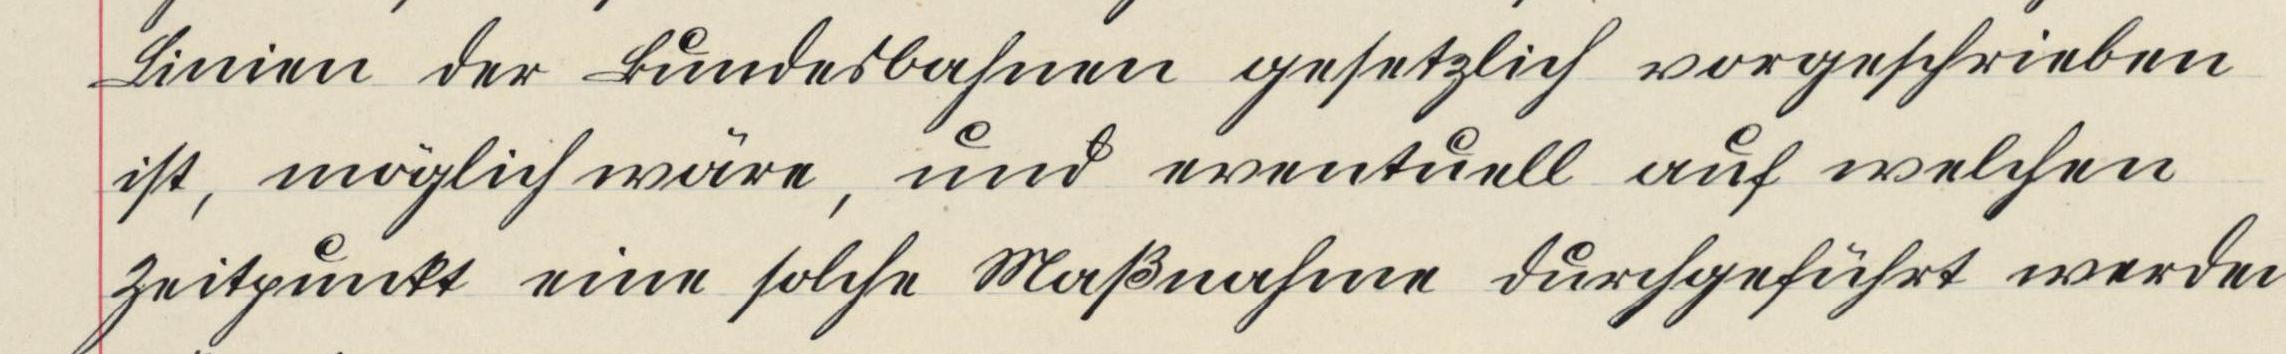 Linien der Bundesbahnen gesetzlich vorgeschrieben
ist, möglich wäre, und eventuell auf welchen
Zeitpunkt eine solche Maßnahme durchgeführt werden